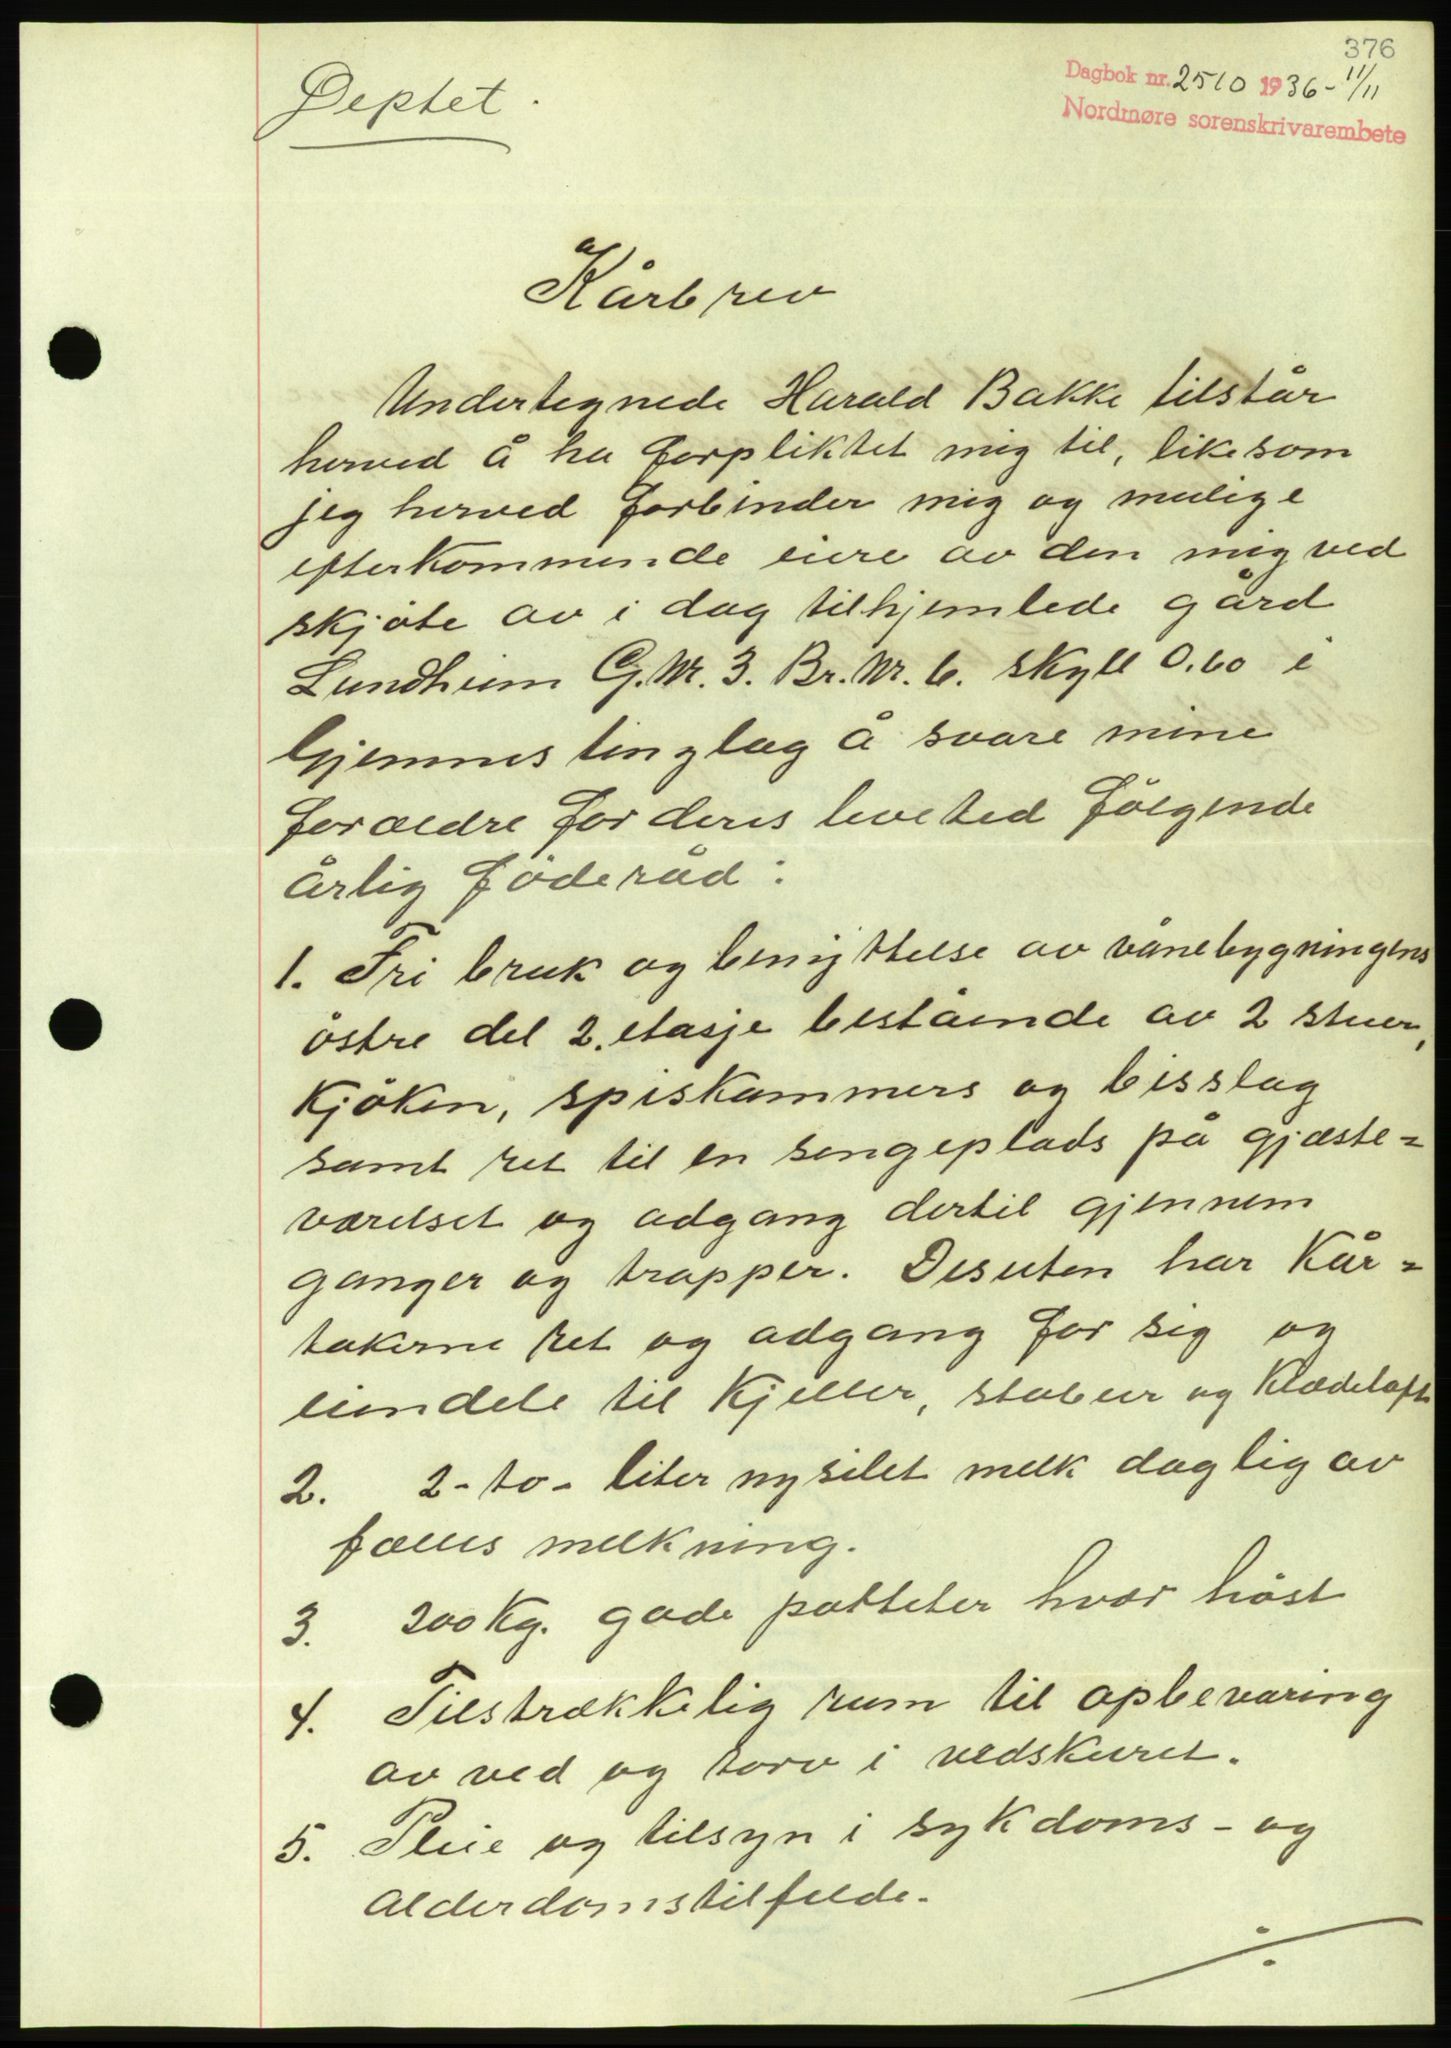 376
Dagbok nr. 2510 1936 - 11/11
Nordmøre sorenskrivarembete
Deptet.
Kårbrev
Undertegnede Harald Bakke tilstår
herved å ha forpliktet mig til, likesom
jeg herved forbinder mig og mulige
efterkommende eiere av den mig ved
skjöte av i dag tilhjemlede gård
Lundheim G.Nr. 3. Br.Nr. 6. skyll 0.60 i
Gjemnes tinglag å svare mine
forældre for deres levetid fölgende
årlig föderåd:
1. Fri bruk og benyttelse av vånebygningens
östre del 2. etasje bestående av 2 stuer,
kjöken, spiskammers og bisslag
samt ret til en sengeplads på gjæste=
værelset og adgang dertil gjennem
ganger og trapper. Desuten har Kår=
takerne ret og adgang for sig og
eiendele til Kjeller, stabur og Klædeloft
2. 2 - to - liter nysilet melk daglig av
fælles melkning.
3. 200 Kg. gode potteter hvær höst
4. Tilstrækkelig rum til opbevaring
av ved og torv i vedskuret.
5. Pleie og tilsyn i sykdoms - og
alderdomstilfelde.
÷